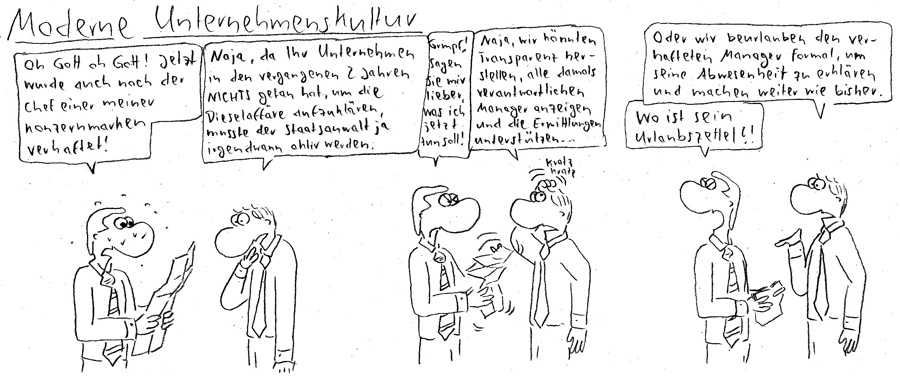 Moderne Unternehmenskultur
Oh Gott oh Gott! Jetzt
wurde auch noch der
Chef einer meiner
Konzernmarken
verhaftet!
Naja, da Ihr Unternehmen
in den vergangenen 2 Jahren
NICHTS getan hat, um die
Dieselaffäre aufzuklären,
musste der Staatsanwalt ja
irgendwann aktiv werden.
Grmpf,
sagen
Sie mir
lieber,
was ich
jetzt
tun soll!
Naja, wir könnten
Transparent her-
stellen, alle damals
verantwortlichen
Manager anzeigen
und die Ermittlungen
unterstützen...
Kratz
Kratz
Oder wir beurlauben den ver-
hafteten Manager formal, um
seine Abwesenheit zu erklären
und machen weiter wie bisher.
Wo ist sein
Urlaubszettel?!